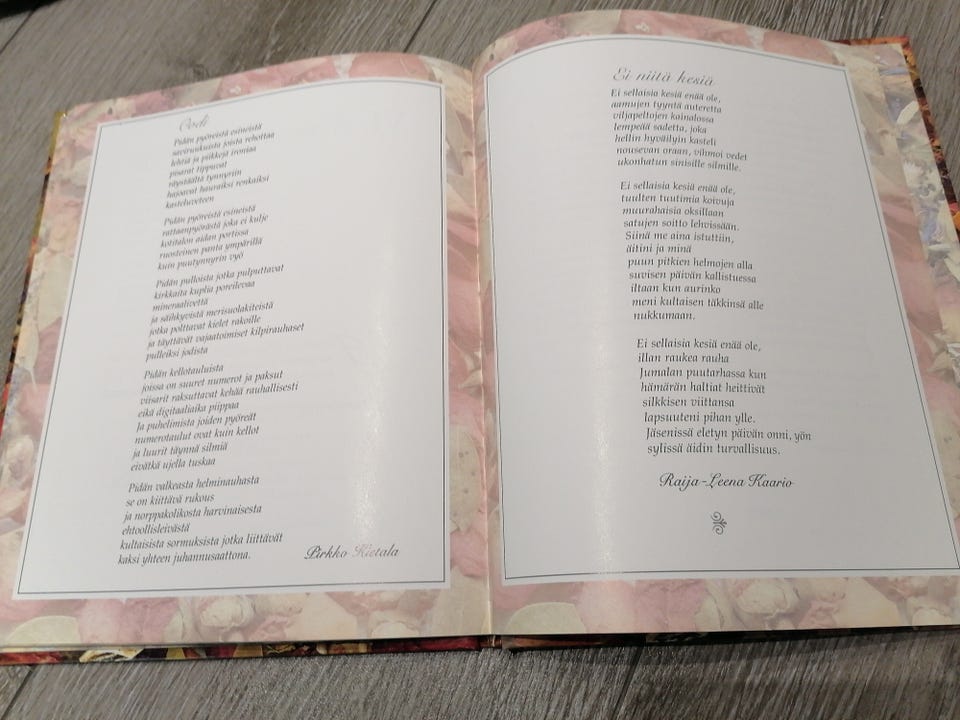 Oodi
Pidän pyöreistä esineistä
saviruukuista joista rehottaa
lehtiä ja piikkejä ironiaa
pisarat tippuvat
räystäältä tynnyriin
hajoavat hauraiksi renkaiksi
kasteluveteen
Pidän pyöreistä esineistä
rattaanpyörästä joka ei kulje
kotitalon aidan portissa
ruosteinen panta ympärillä
kuin puutynnyrin vyö
Pidän pulloista jotka pulputtavat
kirkkaita kuplia poreilevaa
mineraalivettä
ja sähkyvistä merisuolakiteistä
jotka polttavat kielet rakoille
ja täyttävät vajaatoimiset kilpirauhaset
pulleiksi jodista
Pidän kellotauluista
joissa on suuret numerot ja paksut
viisarit raksuttavat kehää rauhallisesti
eikä digitaaliaika piippaa
Ja puhelimista joiden pyöreät
numerotaulut ovat kuin kellot
ja luurit täynnä silmiä
eivätkä ujella tuskaa
Pidän valkeasta helminauhasta
se on kiittävä rukous
ja norppakolikosta harvinaisesta
ehtoollisleivästä
kultaisista sormuksista jotka liittävät
kaksi yhteen juhannusaattona.
Pirkko Hietala
Ei niitä kesiä
Ei sellaisia kesiä enää ole,
aamujen tyyntä auteretta
viljapeltojen kainalossa
lempeää sadetta, joka
hellin hyväilyin kasteli
nousevan oraan, vihmoi vedet
ukonhatun sinisille silmille.
Ei sellaisia kesiä enää ole,
tuulten tuutimia koivuja
muurahaisia oksillaan
satujen soitto lehvissään.
Siinä me aina istuttiin,
äitini ja minä
puun pitkien helmojen alla
suvisen päivän kallistuessa
iltaan kun aurinko
meni kultaisen täkkinsä alle
nukkumaan.
Ei sellaisia kesiä enää ole,
illan raukea rauha
Jumalan puutarhassa kun
hämärän haltiat heittivät
silkkisen viittansa
lapsuuteni pihan ylle.
Jäsenissä eletyn päivän onni, yön
sylissä äidin turvallisuus.
Raija-Leena Kaario